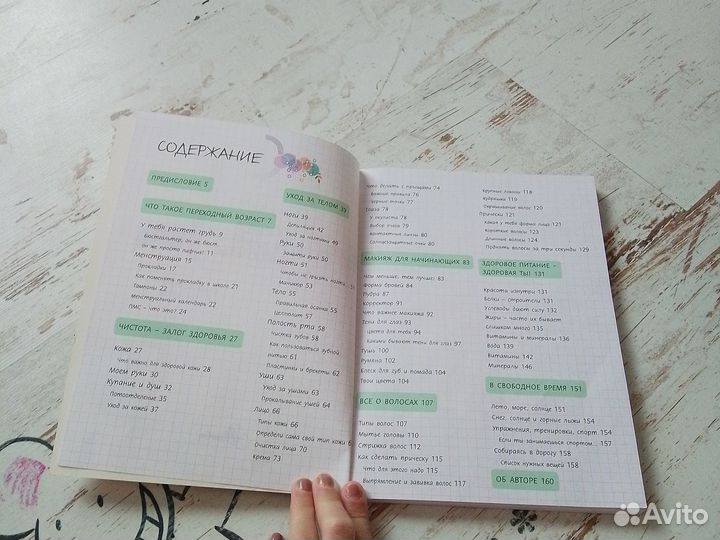 СОДЕРЖАНИЕ
ПРЕДИСЛОВИЕ 5
ЧТО ТАКОЕ ПЕРЕХОДНЫЙ ВОЗРАСТ 7
У тебя растет грудь 9
Бюстгальтер, он же бюст,
он же просто лифчик! 11
Менструация 15
Прокладки 17
Как поменять прокладку в школе 21
Тампоны 22
Менструальный календарь 22
ПМС – что это? 24
ЧИСТОТА – ЗАЛОГ ЗДОРОВЬЯ 27
Кожа 27
Что важно для здоровой кожи 28
Моем руки 30
Купание и душ 32
Потоотделение 35
Уход за кожей 37
УХОД ЗА ТЕЛОМ 39
Ноги 39
Депиляция 42
Уход за ногтями 49
Руки 50
Защити руки 50
Ногти 51
Чтобы не грызть ногти
Маникюр 53
Тело 55
Правильная осанка 55
Целлюлит 57
Полость рта 58
Чистка зубов 58
Как пользоваться зубной
нитью 61
Пластинки и брекеты 62
Уши 63
Уход за ушами 63
Прокалывание ушей 64
Лицо 66
Типы кожи 66
Определи сама свой тип кожи 6
Очистка лица 70
Крема 73
Что делать с прыщами 74
Важные правила 76
Черные точки 77
Глаза 78
У окулиста 78
Выбор очков 79
Контактные линзы 80
Солнцезащитные очки 80
МАКИЯЖ ДЛЯ НАЧИНАЮЩИХ 83
Чем меньше, тем лучше! 83
Форма бровей 84
Пудра 87
Корректор 91
Что важнее макияжа 92
Тени для глаз 93
Цвета для тебя 94
Какими бывают тени для глаз 97
Тушь 100
Румяна 102
Блеск для губ и помада 104
Твои цвета 104
ВСЕ О ВОЛОСАХ 107
Типы волос 107
Мытье головы 110
Стрижка волос 112
Как сделать прическу 115
Что для этого надо 115
Выпрямление и завивка волос 117
Крупные локоны 118
Кудряшки 119
Окрашивание волос 120
Прически 121
Какая у тебя форма лица 121
Короткие волосы 123
Длинные волосы 124
Поднять волосы за три секунды 129
ЗДОРОВОЕ ПИТАНИЕ –
ЗДОРОВАЯ ТЫ! 131
Красота изнутри 131
Белки – строители 131
Углеводы дают силу 132
Жиры – часто их бывает
слишком много 135
Витамины и минералы 136
Вода 139
Витамины 142
Минералы 146
В СВОБОДНОЕ ВРЕМЯ 151
Лето, море, солнце 151
Снег, солнце и горные лыжи 154
Упражнения, тренировки, спорт 154
Если ты занимаешься спортом... 157
Собираясь в дорогу 158
Список нужных вещей 158
ОБ АВТОРЕ 160
Avito